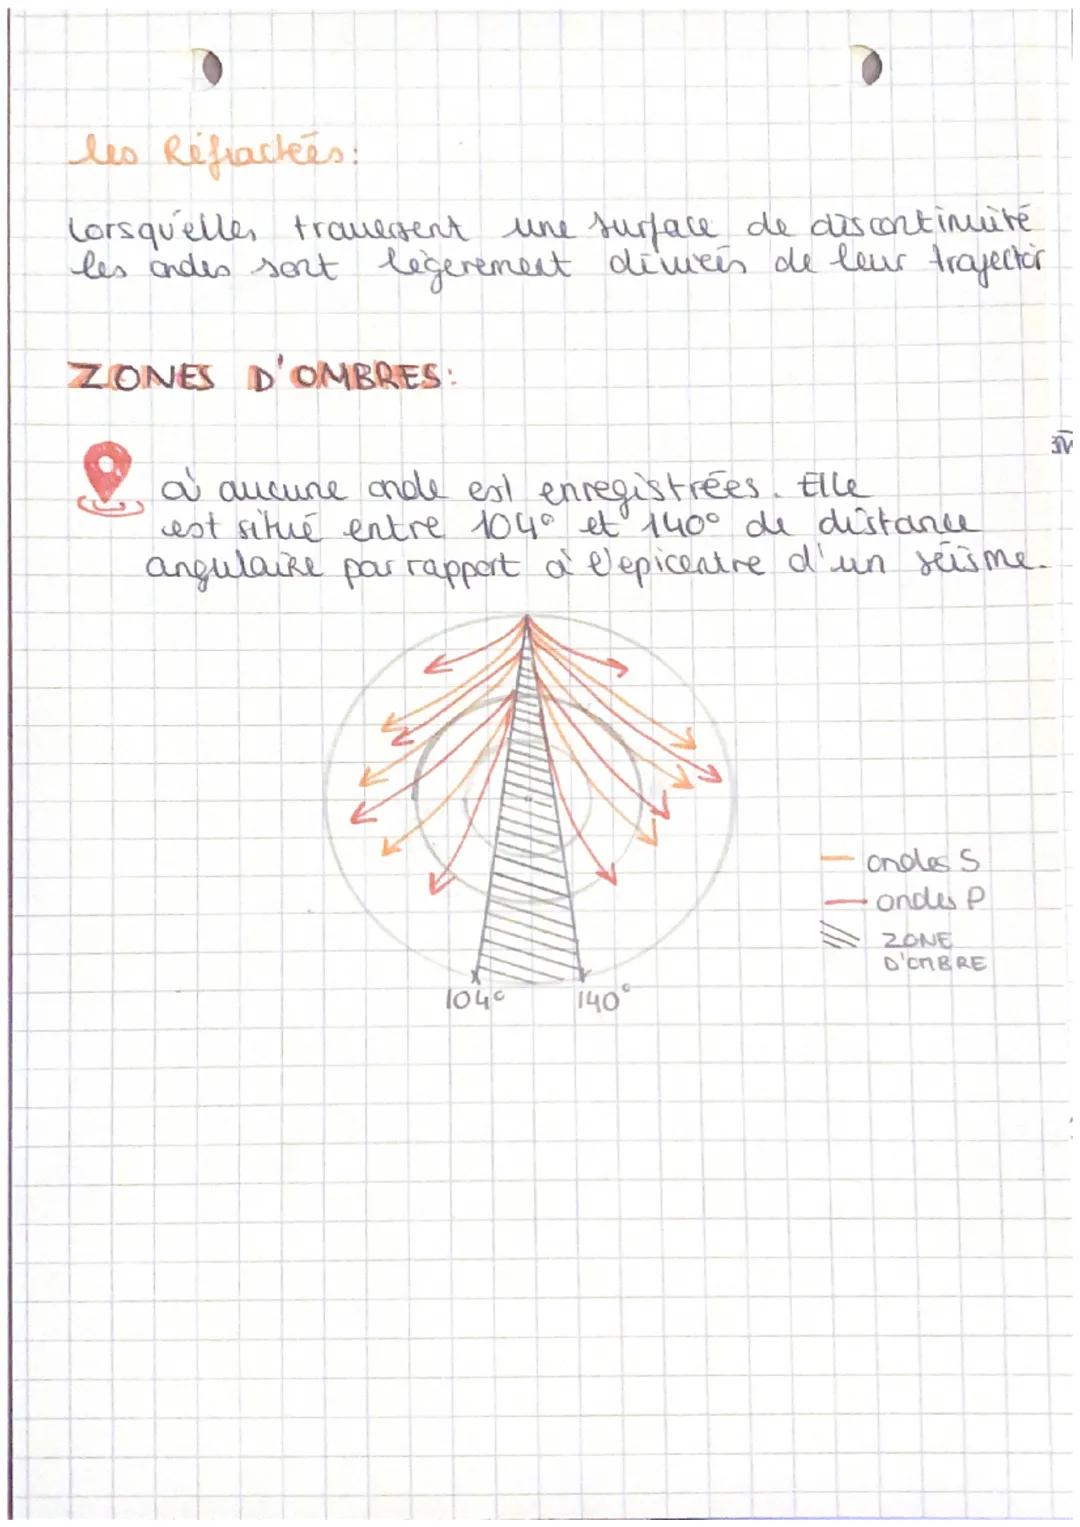 les Réfractées:
Lorsqu'elles traversent une surface de discontinuité
les ondes sont légerement déviées de leur trajectoir
ZONES D'OMBRES:
où aucune onde est enregistrées. Elle
est situé entre 104° et 140° de distance
angulaire par rapport à l'epicentre d'un séisme.
104°
140°
ondes S
ondes P
ZONE
D'OMBRE